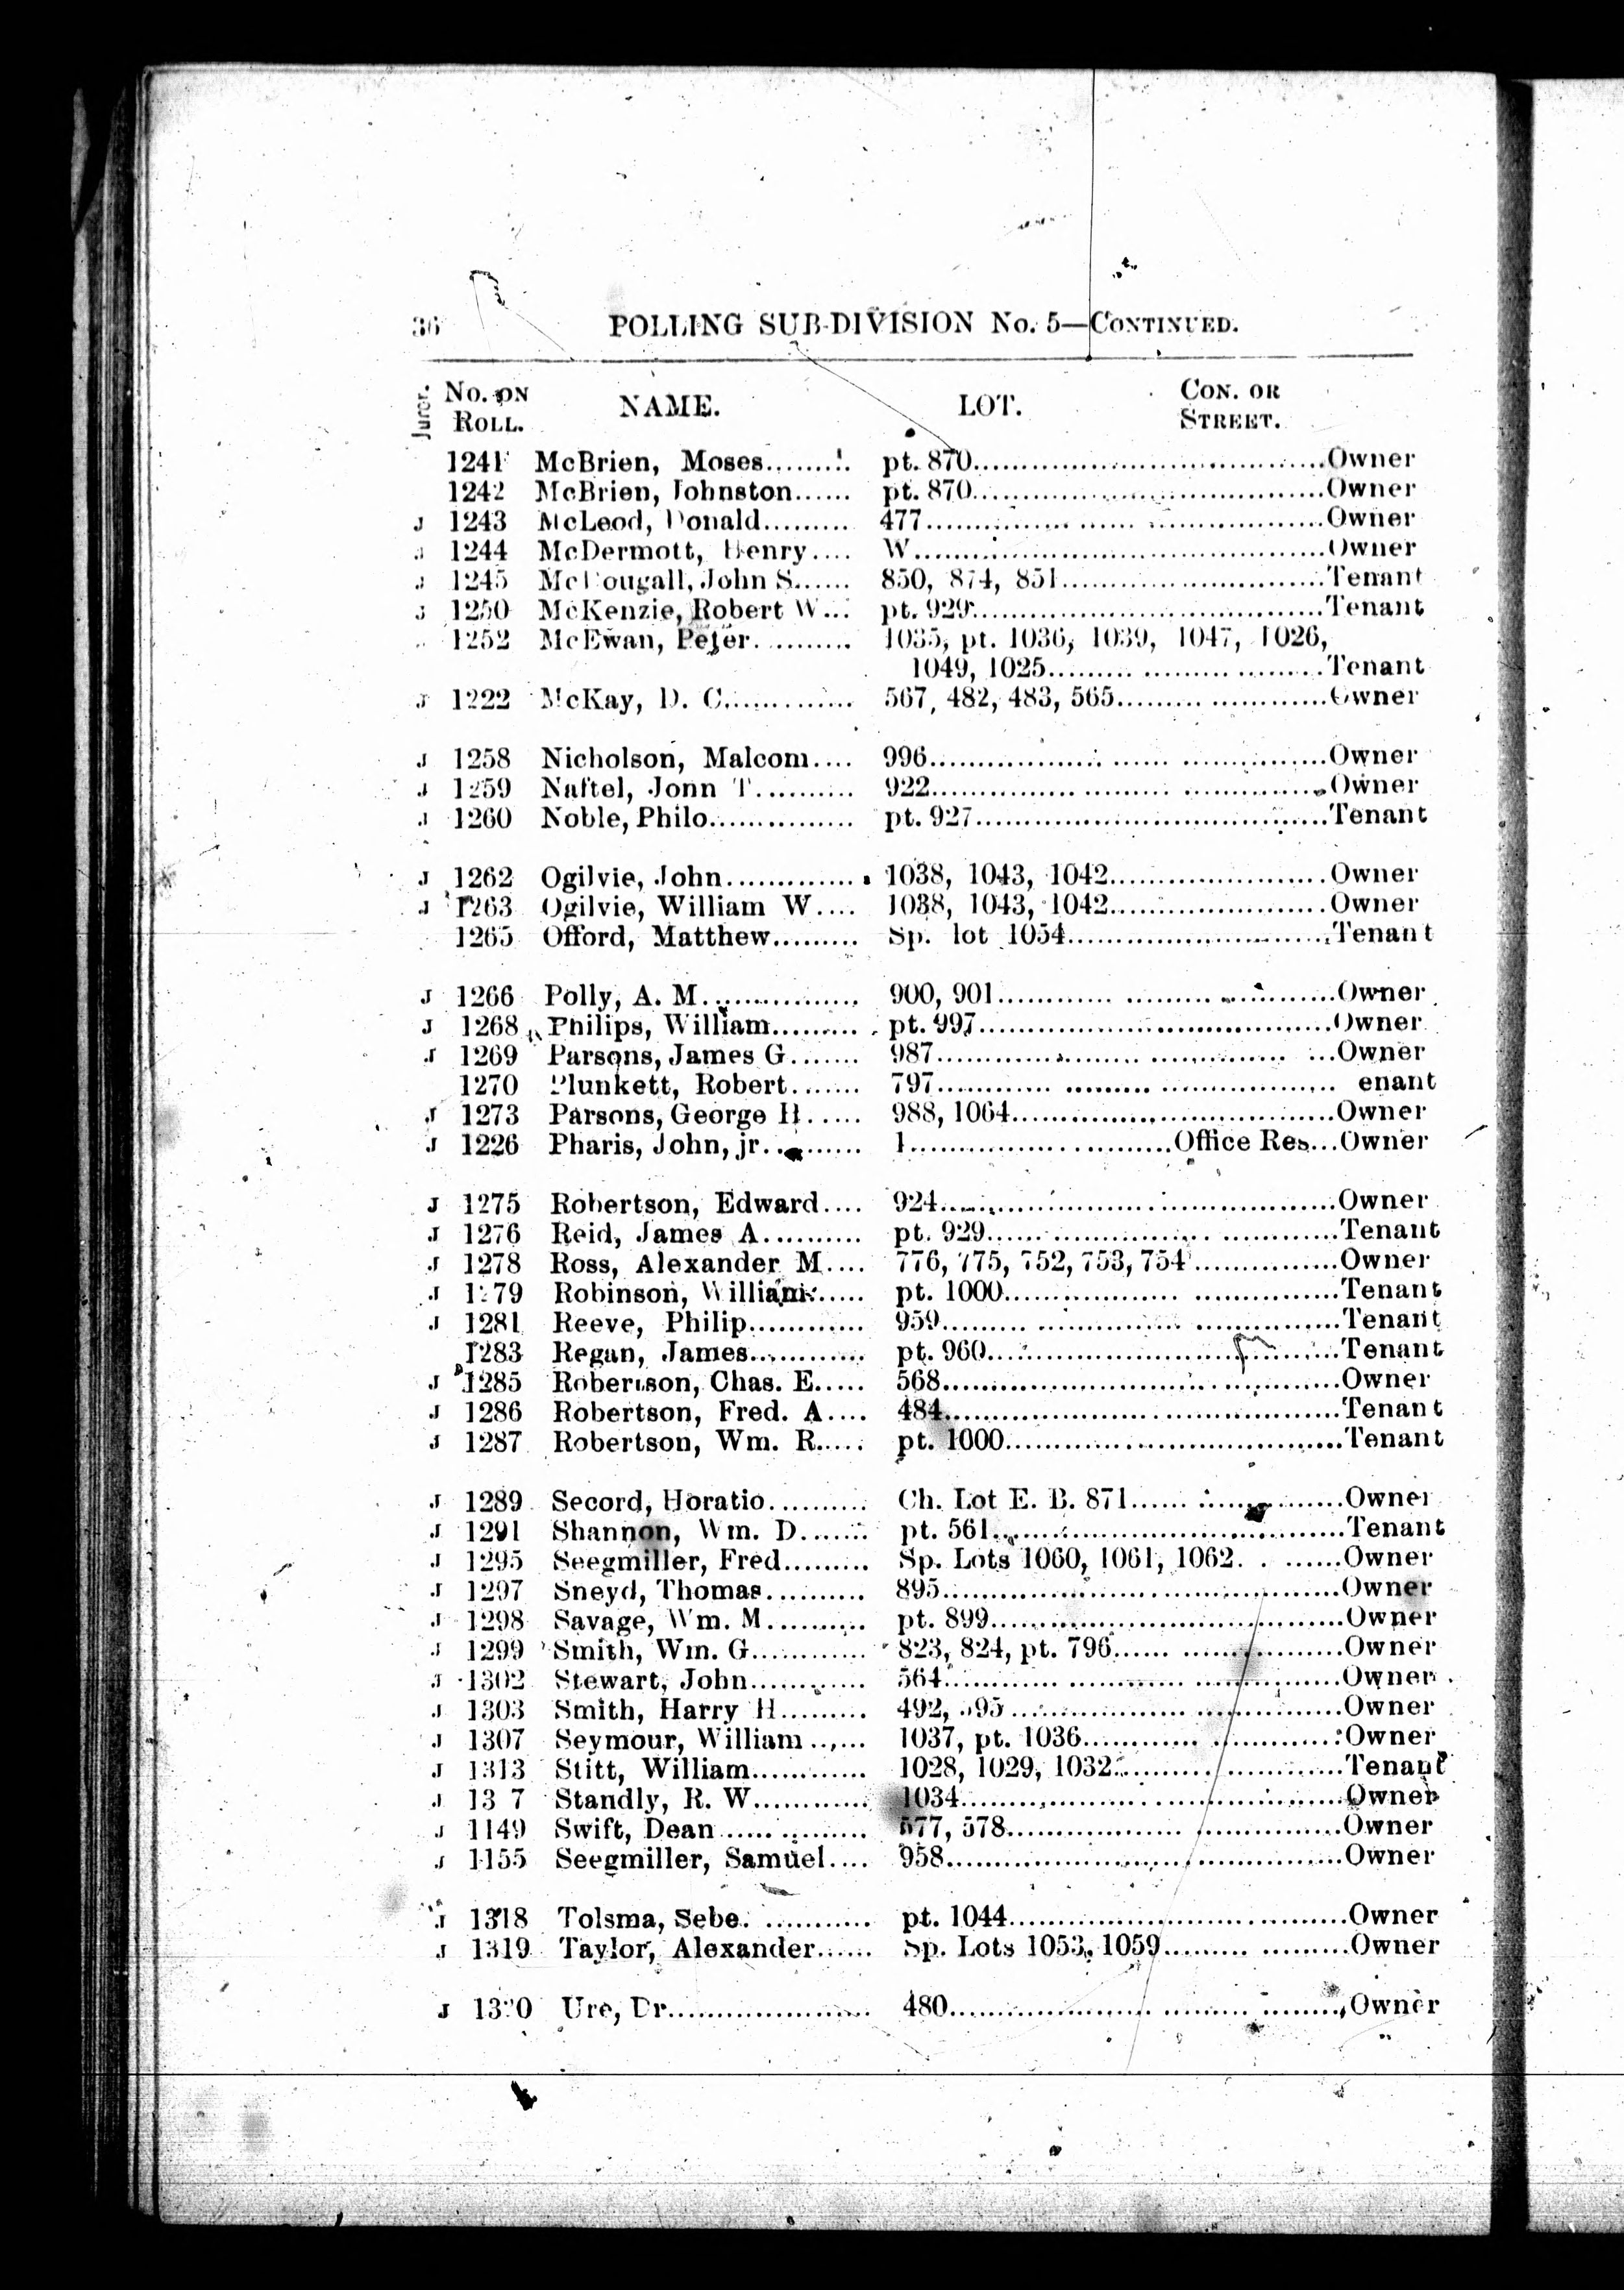 36 POLLING SUB-DIVISION No. 5—CONTINUED.
Juror. No. ON ROLL. NAME. LOT. CON. OR STREET.
1241 McBrien, Moses......... pt. 870....................Owner
1242 McBrien, Johnston...... pt. 870....................Owner
J 1243 McLeod, Donald......... 477....................Owner
J 1244 McDermott, Henry.... W....................Owner
J 1245 McDougall, John S...... 850, 874, 851....................Tenant
J 1250 McKenzie, Robert W... pt. 929....................Tenant
1252 McEwan, Peter.......... 1035, pt. 1036, 1039, 1047, 1026,
1049, 1025....................Tenant
J 1222 McKay, D. C............. 567, 482, 483, 565....................Owner
J 1258 Nicholson, Malcom.... 996....................Owner
J 1259 Naftel, Jonn T.......... 922....................Owner
J 1260 Noble, Philo............... pt. 927....................Tenant
J 1262 Ogilvie, John............. 1038, 1043, 1042....................Owner
J 1263 Ogilvie, William W.... 1038, 1043, 1042....................Owner
1265 Offord, Matthew......... Sp. lot 1054....................Tenant
J 1266 Polly, A. M................ 900, 901....................Owner
J 1268 Philips, William......... pt. 997....................Owner
J 1269 Parsons, James G....... 987....................Owner
1270 Plunkett, Robert....... 797.................... enant
J 1273 Parsons, George H...... 988, 1064....................Owner
J 1226 Pharis, John, jr.......... 1....................Office Res...Owner
J 1275 Robertson, Edward.... 924....................Owner
J 1276 Reid, James A.......... pt. 929....................Tenant
J 1278 Ross, Alexander M.... 776, 775, 752, 753, 754...............Owner
J 1279 Robinson, William..... pt. 1000....................Tenant
J 1281 Reeve, Philip............ 959....................Tenant
1283 Regan, James............ pt. 960....................Tenant
J 1285 Robertson, Chas. E..... 568....................Owner
J 1286 Robertson, Fred. A.... 484....................Tenant
J 1287 Robertson, Wm. R..... pt. 1000....................Tenant
J 1289 Secord, Horatio.......... Ch. Lot E. B. 871....................Owner
J 1291 Shannon, Wm. D....... pt. 561....................Tenant
J 1295 Seegmiller, Fred......... Sp. Lots 1060, 1061, 1062. . ......Owner
J 1297 Sneyd, Thomas.......... 895....................Owner
J 1298 Savage, Wm. M.......... pt. 899....................Owner
J 1299 Smith, Wm. G............ 823, 824, pt. 796....................Owner
J 1302 Stewart, John............ 564....................Owner
J 1303 Smith, Harry H......... 492, 595....................Owner
J 1307 Seymour, William...... 1037, pt. 1036....................Owner
J 1313 Stitt, William............ 1028, 1029, 1032....................Tenant
J 13 7 Standly, R. W............ 1034....................Owner
J 1149 Swift, Dean............... 577, 578....................Owner
J 1155 Seegmiller, Samuel.... 958....................Owner
J 1318 Tolsma, Sebe............ pt. 1044....................Owner
J 1319 Taylor, Alexander...... Sp. Lots 1053, 1059....................Owner
J 1320 Ure, Dr..................... 480....................Owner